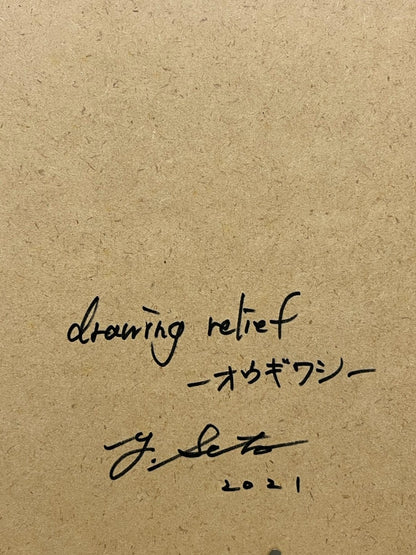 drawing relief
ーオウギワシー
Y. Seto
2021